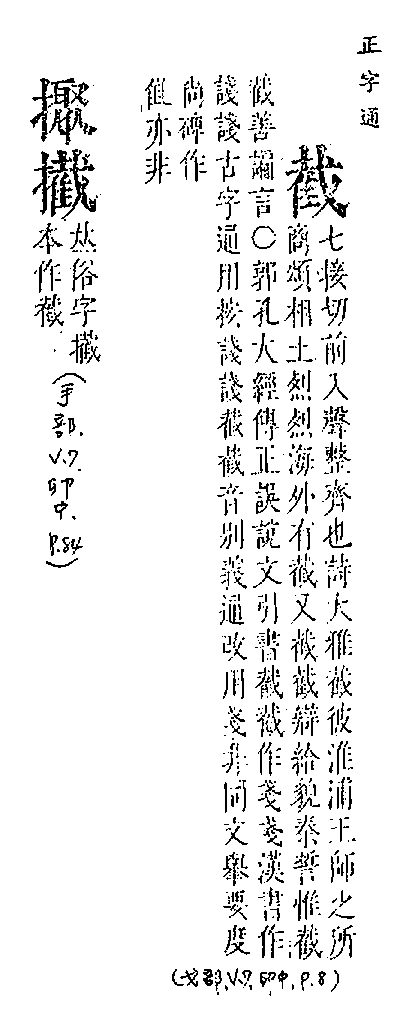 正字通
截
七接切前入聲整齊也詩大雅截彼淮浦王師之所
商頌相土烈烈海外有截又截截辯給貌秦誓惟截
截善諞言○郭孔太經傳正誤說文引書截截作戔戔漢書作
諓諓古字通用按諓諓截截音別義通改用戔非同文舉要度
尚碑作
亦非
(戈部,V.7,卯中,P.8)
擮
𠀤俗字擮
本作截
(手部.V.7.卯中.P.84)